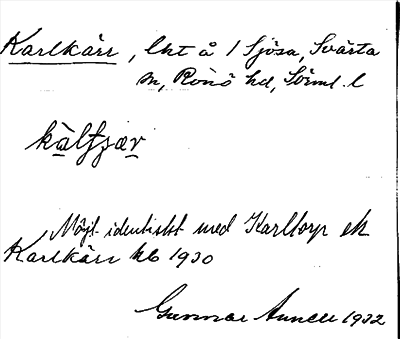 Karlkärr, lht å 1 Sjösa, Svärta
sn, Rönö hd, Sörml. l
Möjl. identiskt med Karltorp ek
Karlkärr hb 1930
Gunnar 1932